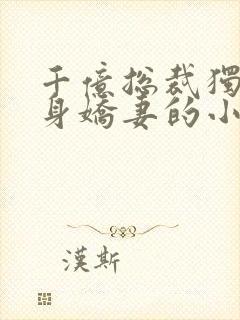 千億總裁獨
身嬌妻的小
漢斯